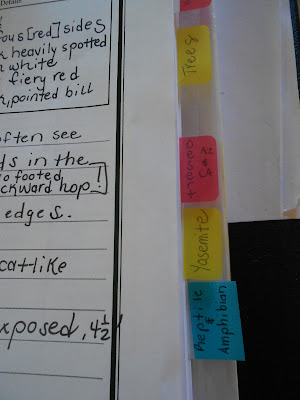 ous [red] sides
k heavily spotted
white
fiery red
k, pointed bill
often see
ds in the
o footed,
ckward hop!
edges.
catlike
xposed, 4½
Trees
Yosemite
Reptile
&
Amphibian